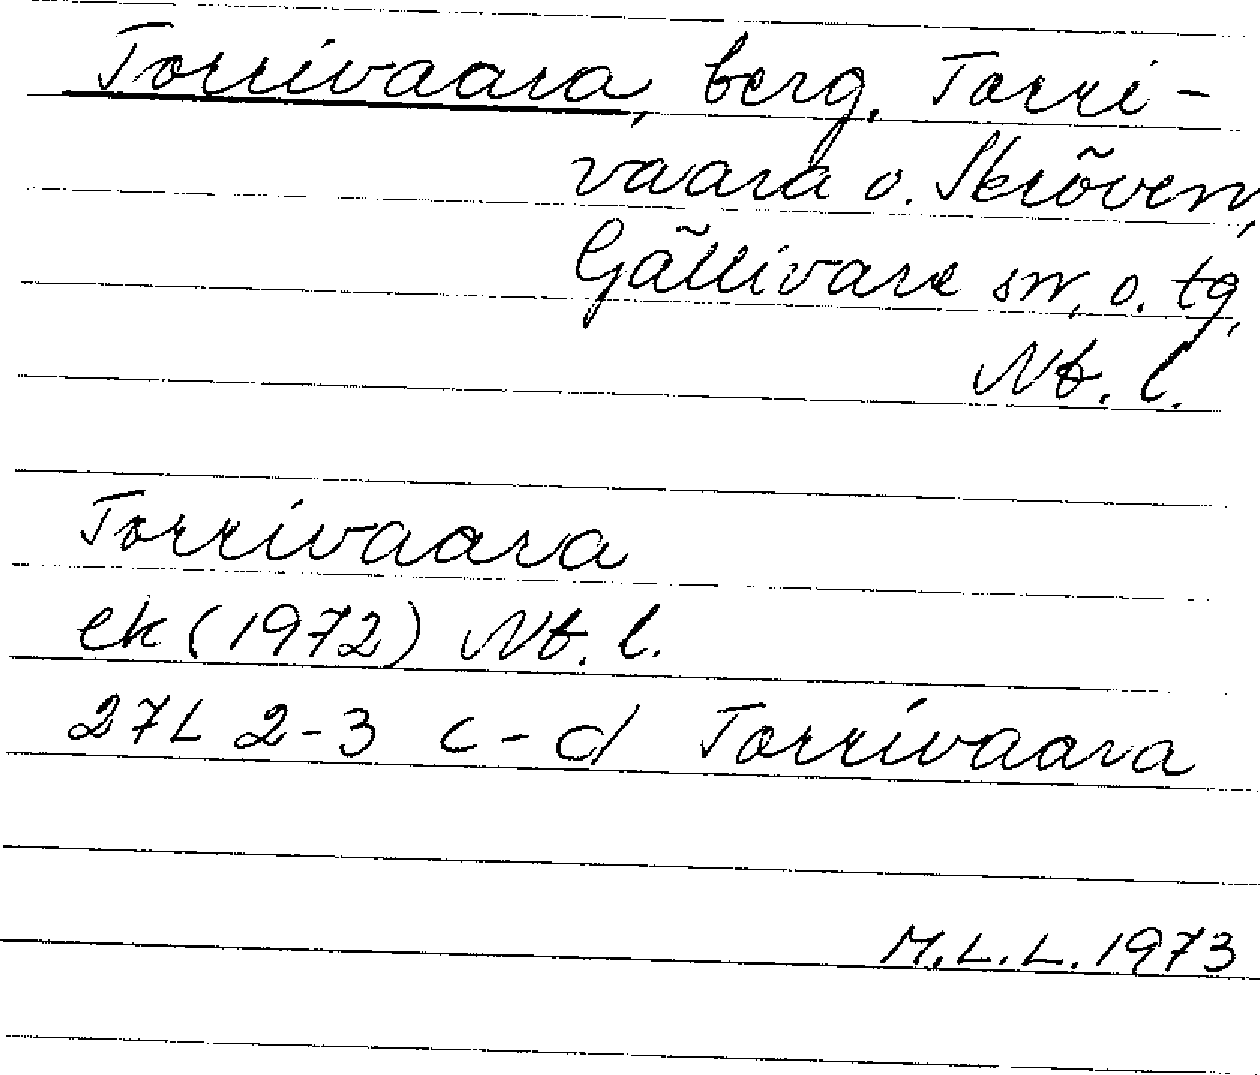 Torrivaara, berg. Torri-
vaara o. Skröven,
Gällivare sn, o. tg,
Nb. l.
Torrivaara
ek (1972) Nb. l.
27L 2-3 c-d Torrivaara
M.L.L. 1973